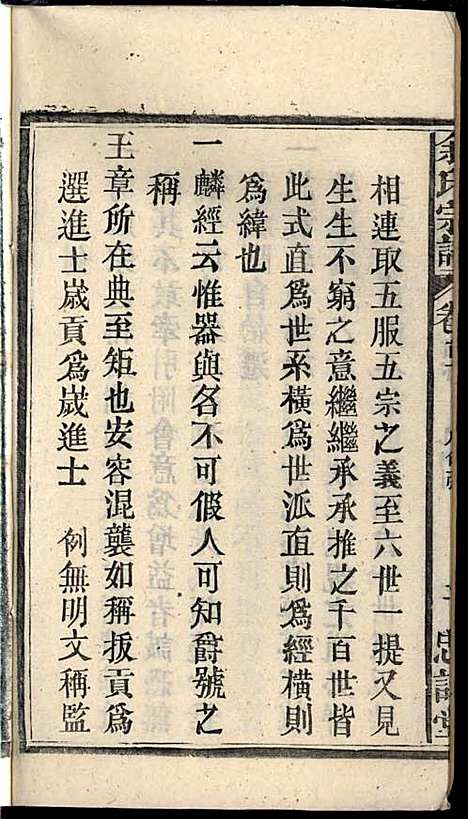 余氏宗譜
相連取五服五宗之義至六世一提又見
生生不窮之意繼繼承承推之千百世皆
此式直爲世系橫爲世派直則爲經橫則
爲緯也
一麟經云惟器與名不可假人可知爵號之
稱
王章所在典至矩也安容混襲如稱拔貢爲
選進士歲貢爲歲進士 例無明文稱監